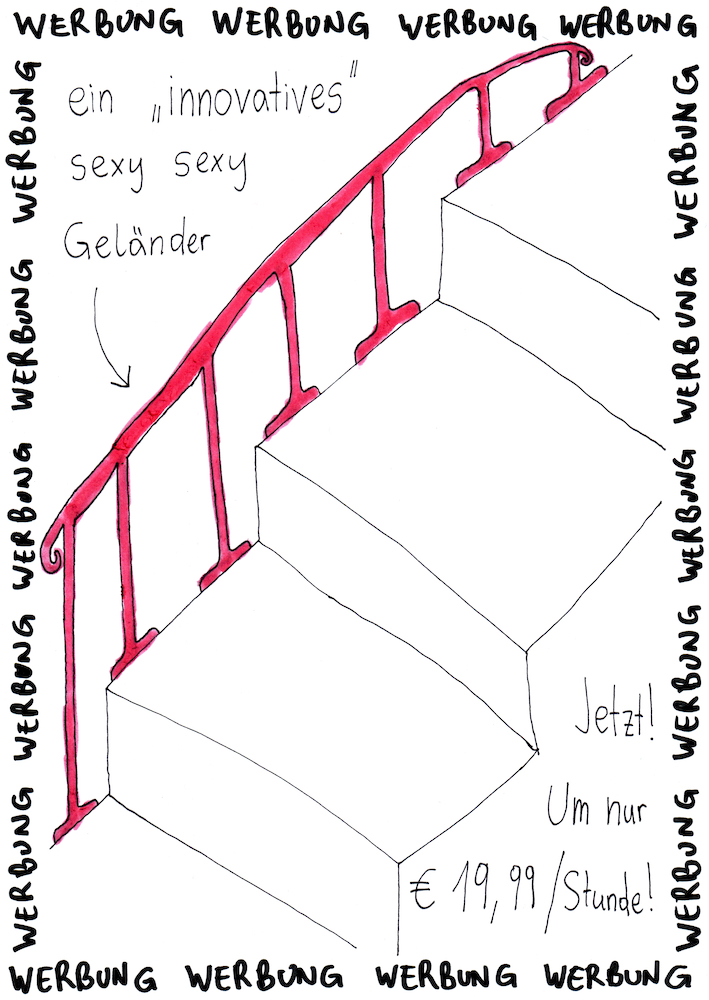 WERBUNG WERBUNG WERBUNG WERBUNG
ein „innovatives“
sexy sexy
Geländer
WERBUNG
WERBUNG
WERBUNG
WERBUNG
WERBUNG
WERBUNG
WERBUNG
WERBUNG
WERBUNG
WERBUNG
Jetzt!
Um nur
€ 19,99/Stunde!
WERBUNG WERBUNG WERBUNG WERBUNG